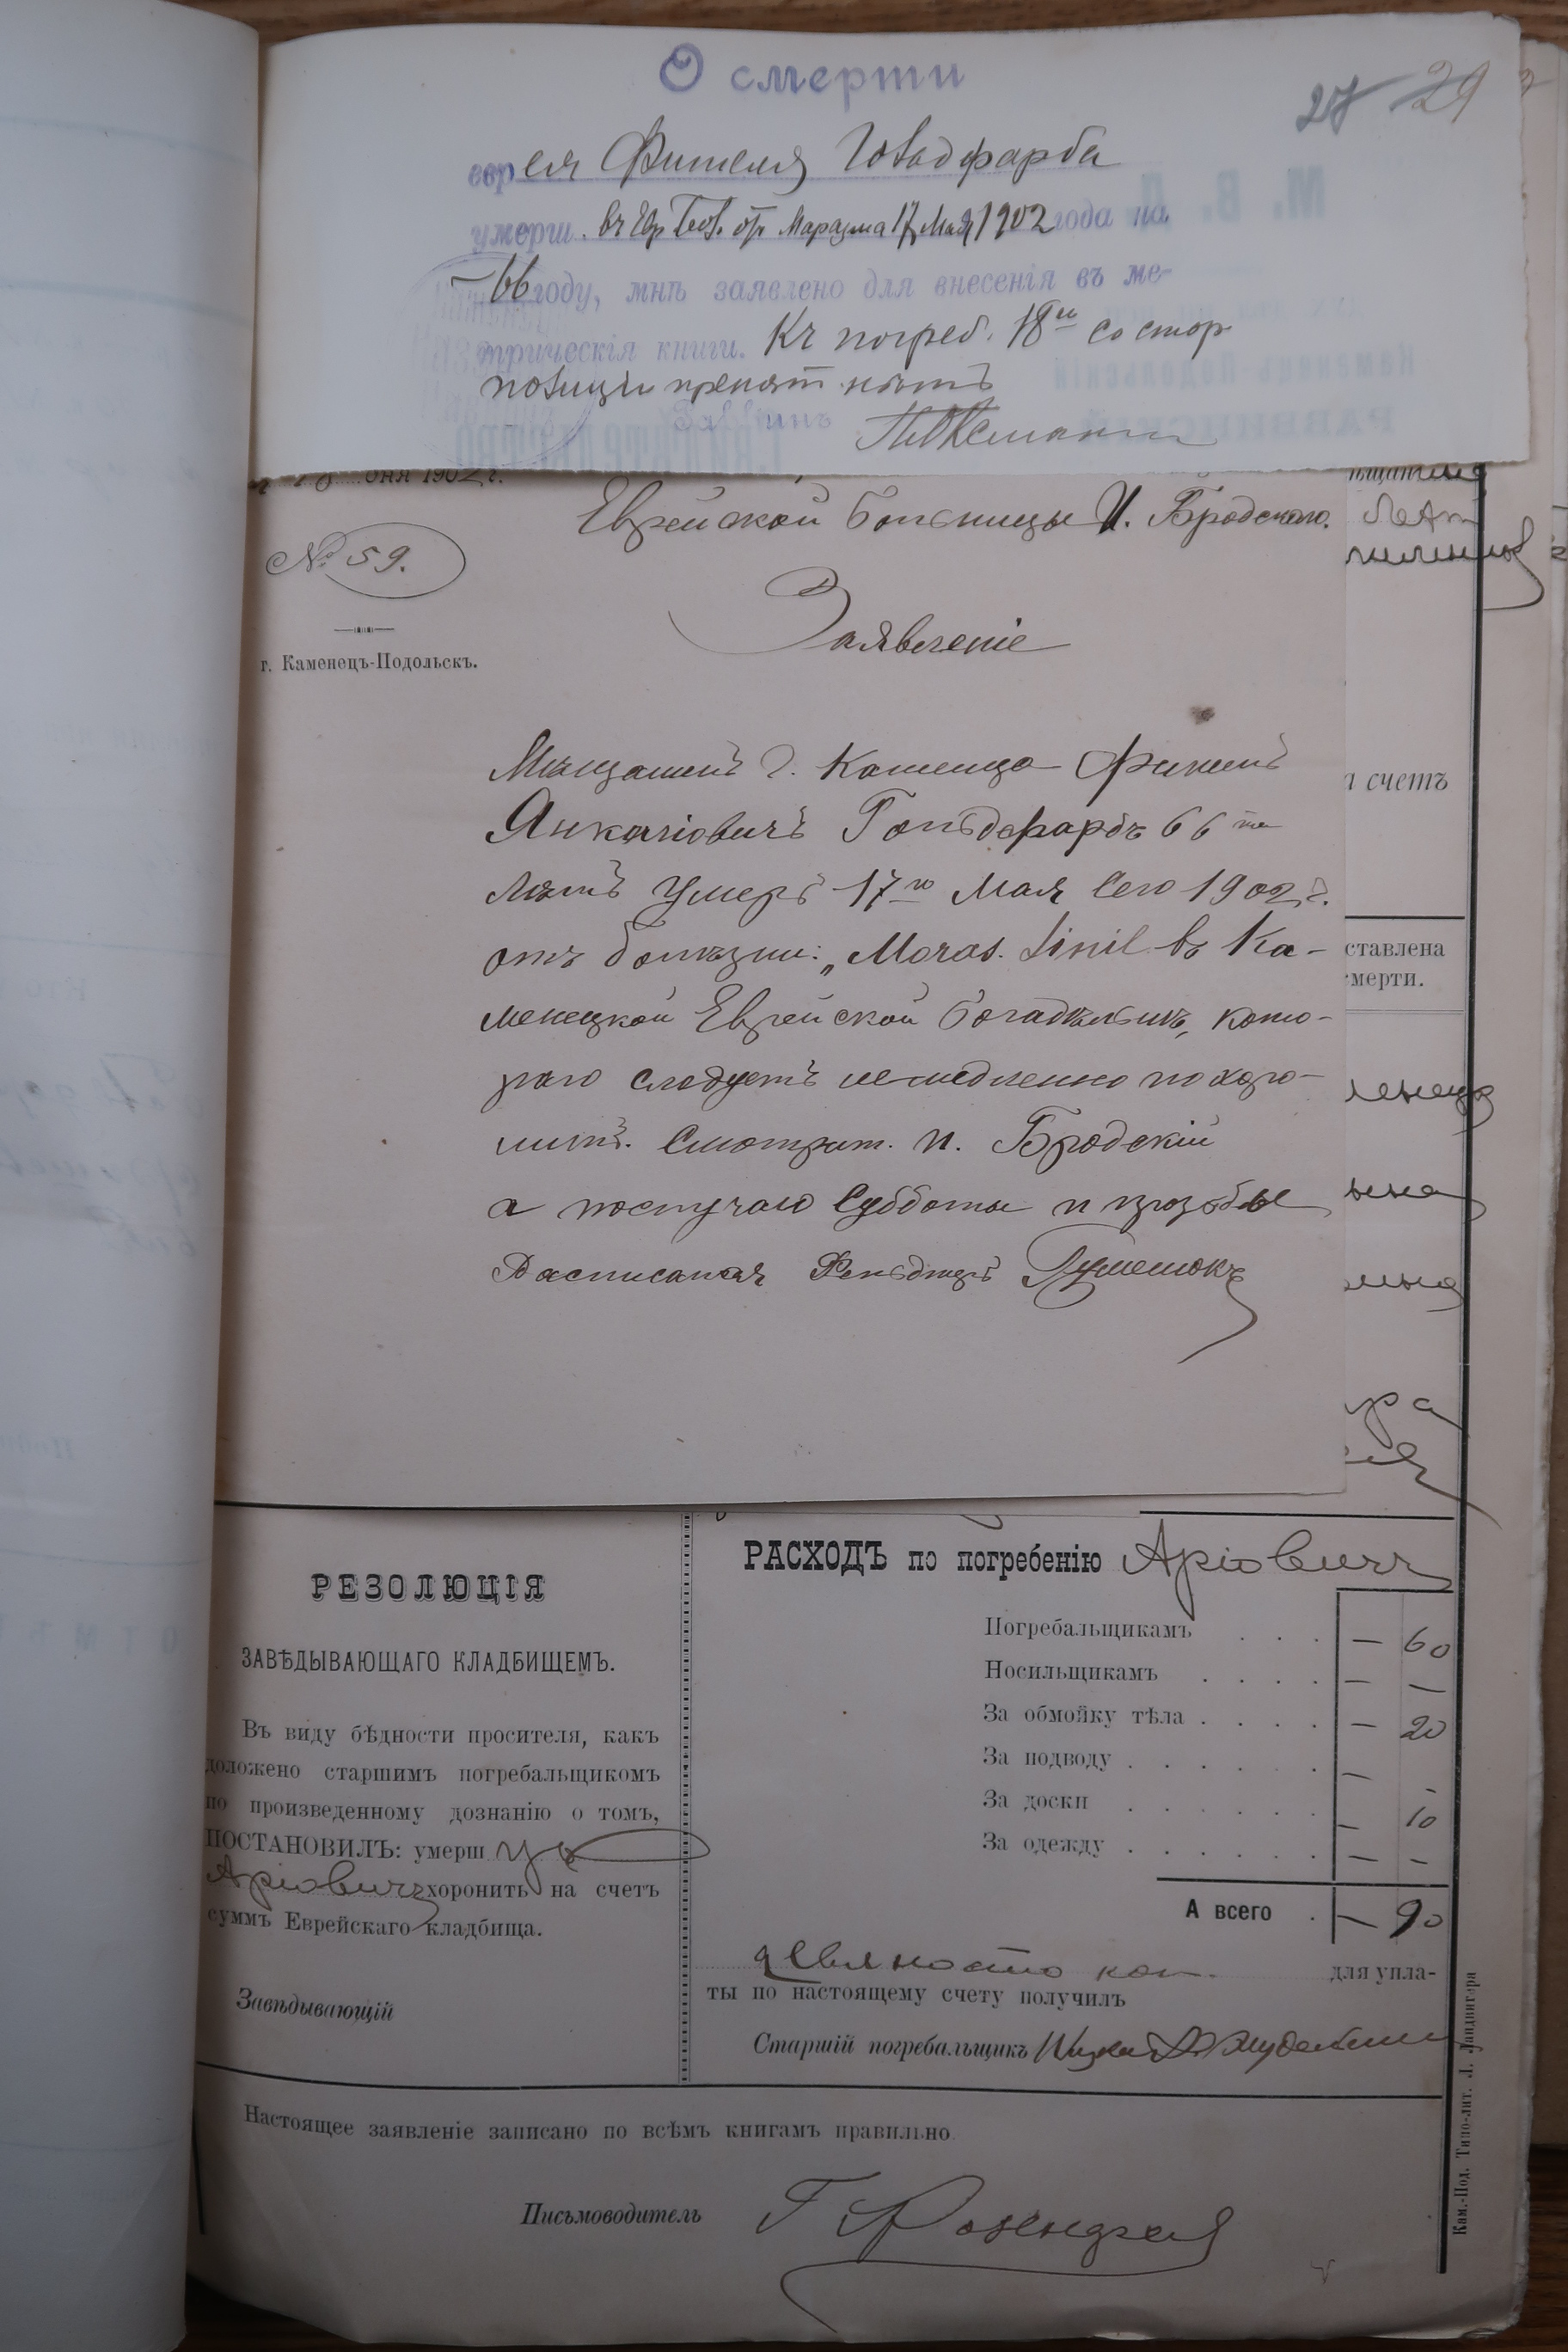 О смерти
28 29
еврея Фителя Гольдфарба
умерш. въ Евр. Бог. от Маразма 17 Мая 1902 года на
66 году, мнѣ заявлено для внесенія въ ме-
трическія книги. Къ погреб. 18го со стор
полиціи препят. нѣтъ
Раввинъ
1902 г.
Еврейской Больницы И. Бродскаго.
№ 59.
Заявленіе
г. Каменецъ-Подольскъ.
Мѣщанинъ г. Каменца
Янкелiовичъ Гольдфарбъ 66ти
Лѣтъ Умеръ 17го Мая Сего 1902 г.
отъ болѣзни: „Maras. Sinil. въ Ка-
менецкой Еврейской богадѣльнѣ, кото-
раго следуетъ немедленно похоро-
нитъ. Смотрит. И. Бродскій
а послучаю Субботы и прозьбы
Расписался Фельдшеръ
счетъ
ставлена
смерти.
РЕЗОЛЮЦІЯ
ЗАВѢДЫВАЮЩАГО КЛАДБИЩЕМЪ.
Въ виду бѣдности просителя, какъ
доложено старшимъ погребальщикомъ
по произведенному дознанію о томъ,
ПОСТАНОВИЛЪ: умерш
Аріовичъ хоронить на счетъ
суммъ Еврейскаго кладбища.
Завѣдывающій
РАСХОДЪ по погребенію Аріовичъ
Погребальщикамъ . . . — 60
Носильщикамъ . . . . — —
За обмойку тѣла . . . . — 20
За подводу . . . . . . — -
За доски . . . . . . — 10
За одежду . . . . . . — -
А всего . — 90
девяносто коп. для упла-
ты по настоящему счету получилъ
Старшій погребальщикъ
Настоящее заявленіе записано по всѣмъ книгамъ правильно
Письмоводитель
Кам.-Под. Типо-лит. Л. Ландвигера